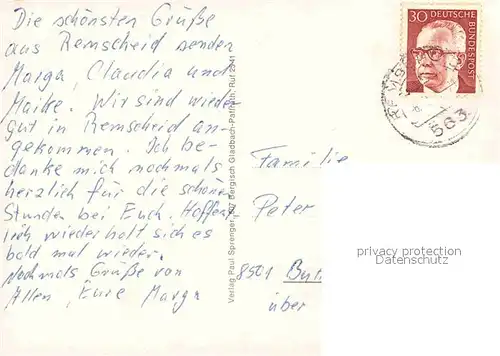 Die schönsten Grüße
aus Remscheid senden
Marga, Claudia und
Maike. Wir sind wieder
gut in Remscheid an-
gekommen. Ich be-
danke mich nochmals
herzlich für die schönen
Stunden bei Euch. Hoffent-
lich wiederholt sich es
bald mal wieder.
Nochmals Grüße von
Allen, Eure Marga
Verlag Paul Sprenger, Bergisch Gladbach-Paffrath, Ruf
30 DEUTSCHE BUNDESPOST
563
Familie
Peter
8501
über
privacy protection
Datenschutz